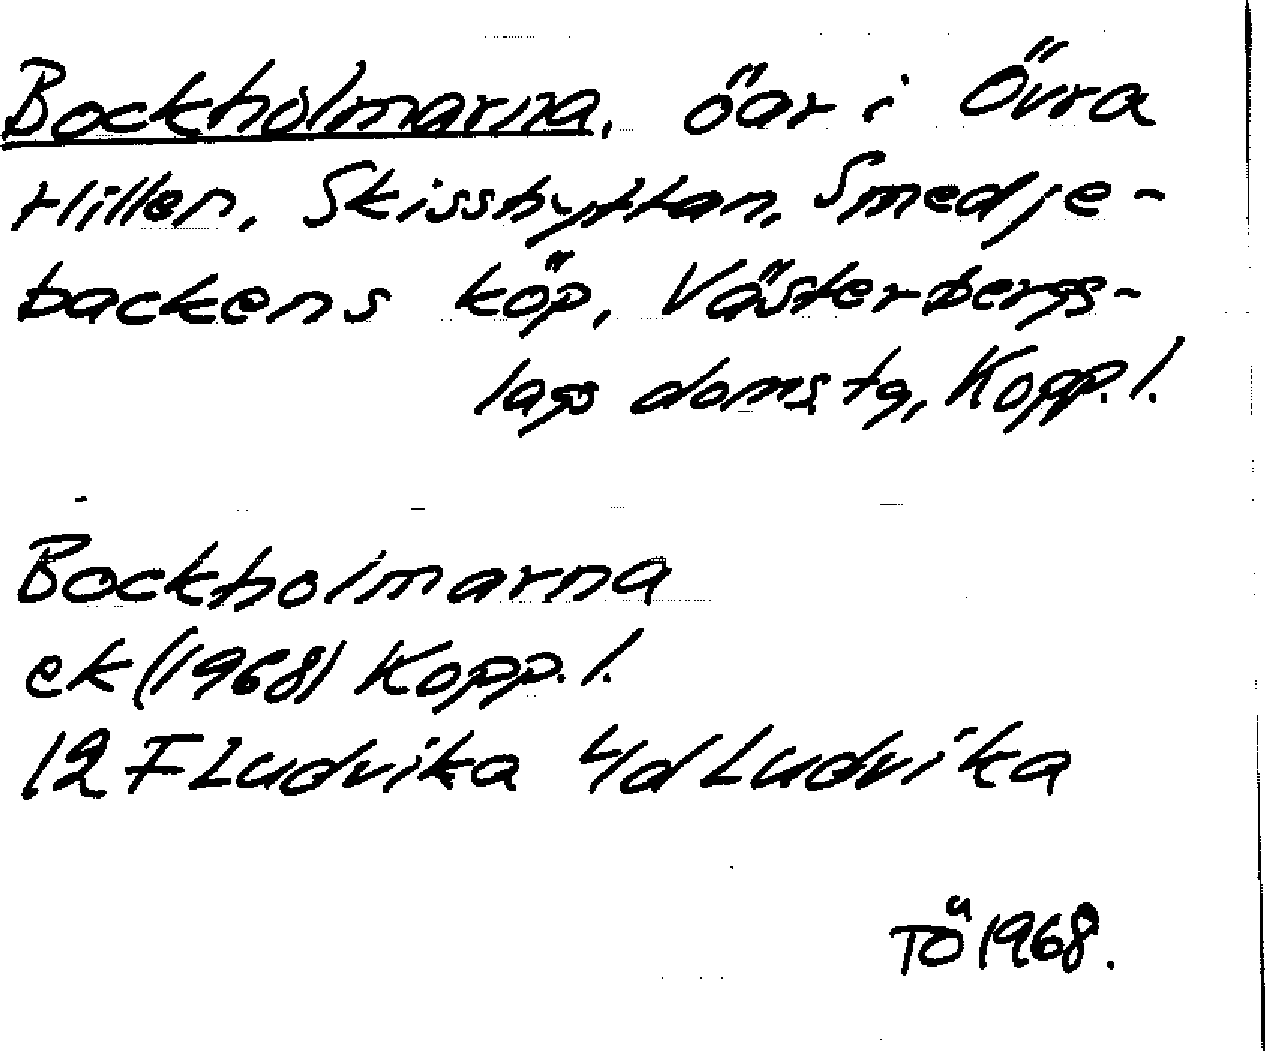 Bockholmarna, öar i Övra
Hillen, Skisshyttan, Smedje-
backens köp, Västerbergs-
lags doms. tg, Kopp. l.
Bockholmarna
ek (1968) Kopp. l.
12 F Ludvika 4d Ludvika
TÖ 1968.